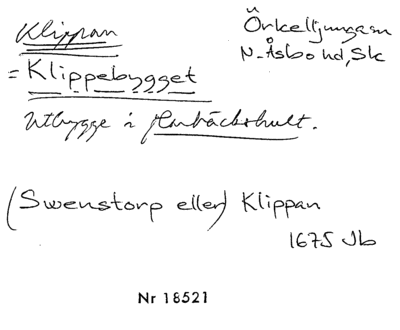 Klippan
Örkelljunga sn
N. Åsbo hd, Sk
= Klippebygget
Utbygge i Harbäckshult.
(Swenstorp eller) Klippan
1675 Jb
Nr 18521